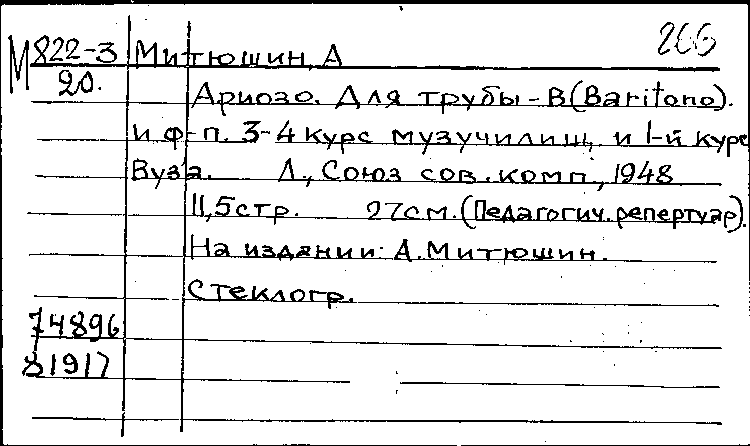 М 822-3 Митюшин, А 266
20.
Ариозо. Для трубы-В (Baritono).
и ф-п. 3-4 курс музучилищ, и 1-й курс
Вуза. Л., Союз сов. комп., 1948
11,5стр. 27см. (Педагогич. репертуар).
На издании: А. Митюшин.
Стеклогр.
74896
81917